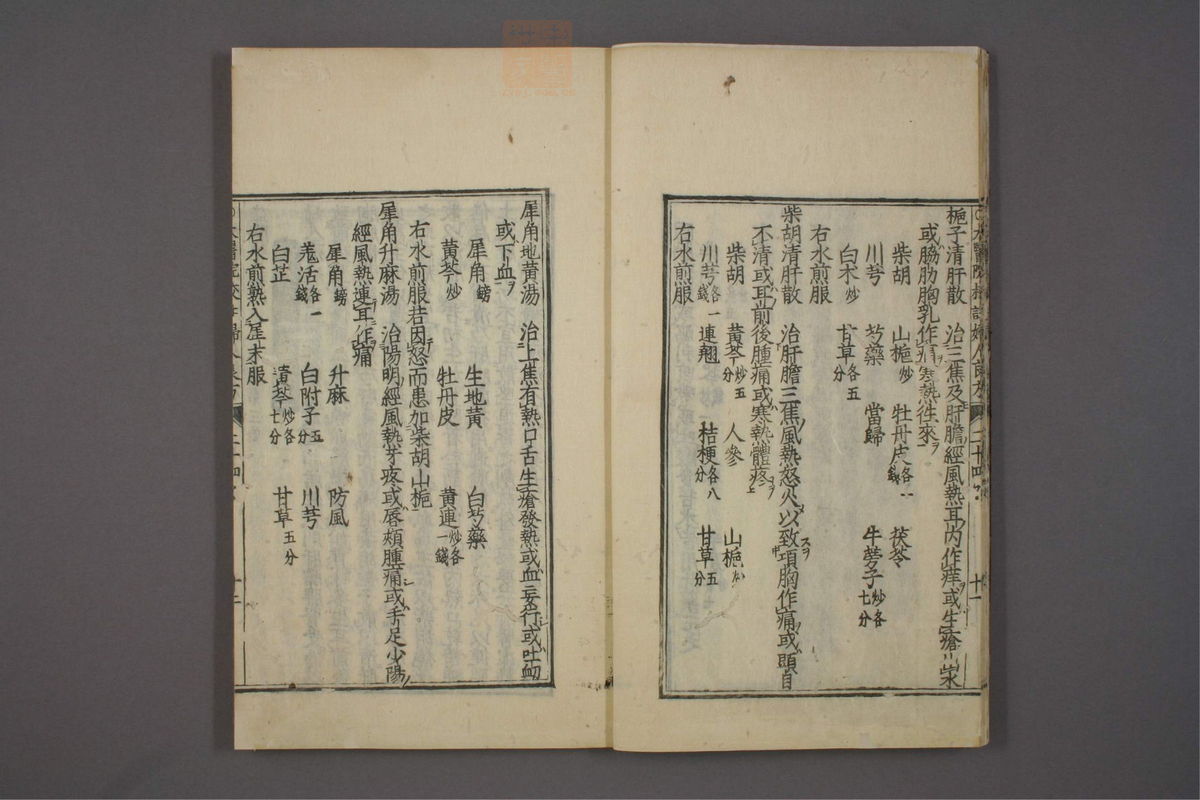 梔子清肝散　治三焦及肝膽經風熱耳内作痒或生瘡出水
或脇肋胸乳作痛寒熱往來
柴胡　山梔炒　牡丹皮各一錢　茯苓
川芎　芍藥　當歸　牛蒡子炒各七分
白朮炒　甘草各五分
右水煎服
柴胡清肝散　治肝膽三焦風熱怒火以致項胸作痛或頭目
不清或耳前後腫痛或寒熱體疼
柴胡　黄芩炒五分　人參　山梔炒
川芎各一錢　連翹　桔梗各八分　甘草五分
右水煎服
犀角地黄湯　治上焦有熱口舌生瘡發熱或血妄行或吐衂
或下血
犀角鎊　生地黄　白芍藥
黄芩炒　牡丹皮　黄連炒各一錢
右水煎服若因怒而患加柴胡山梔
犀角升麻湯　治陽明經風熱牙疼或唇頰腫痛或手足少陽
經風熱連耳作痛
犀角鎊　升麻　防風
羗活各一錢　白附子五分　川芎
白芷　黄芩炒各七分　甘草五分
右水煎熟入犀末服